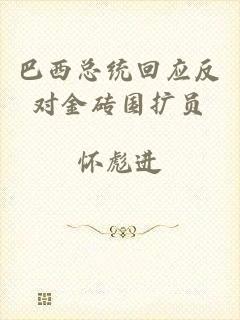 巴西总统回应反
对金砖国扩员
怀彪进